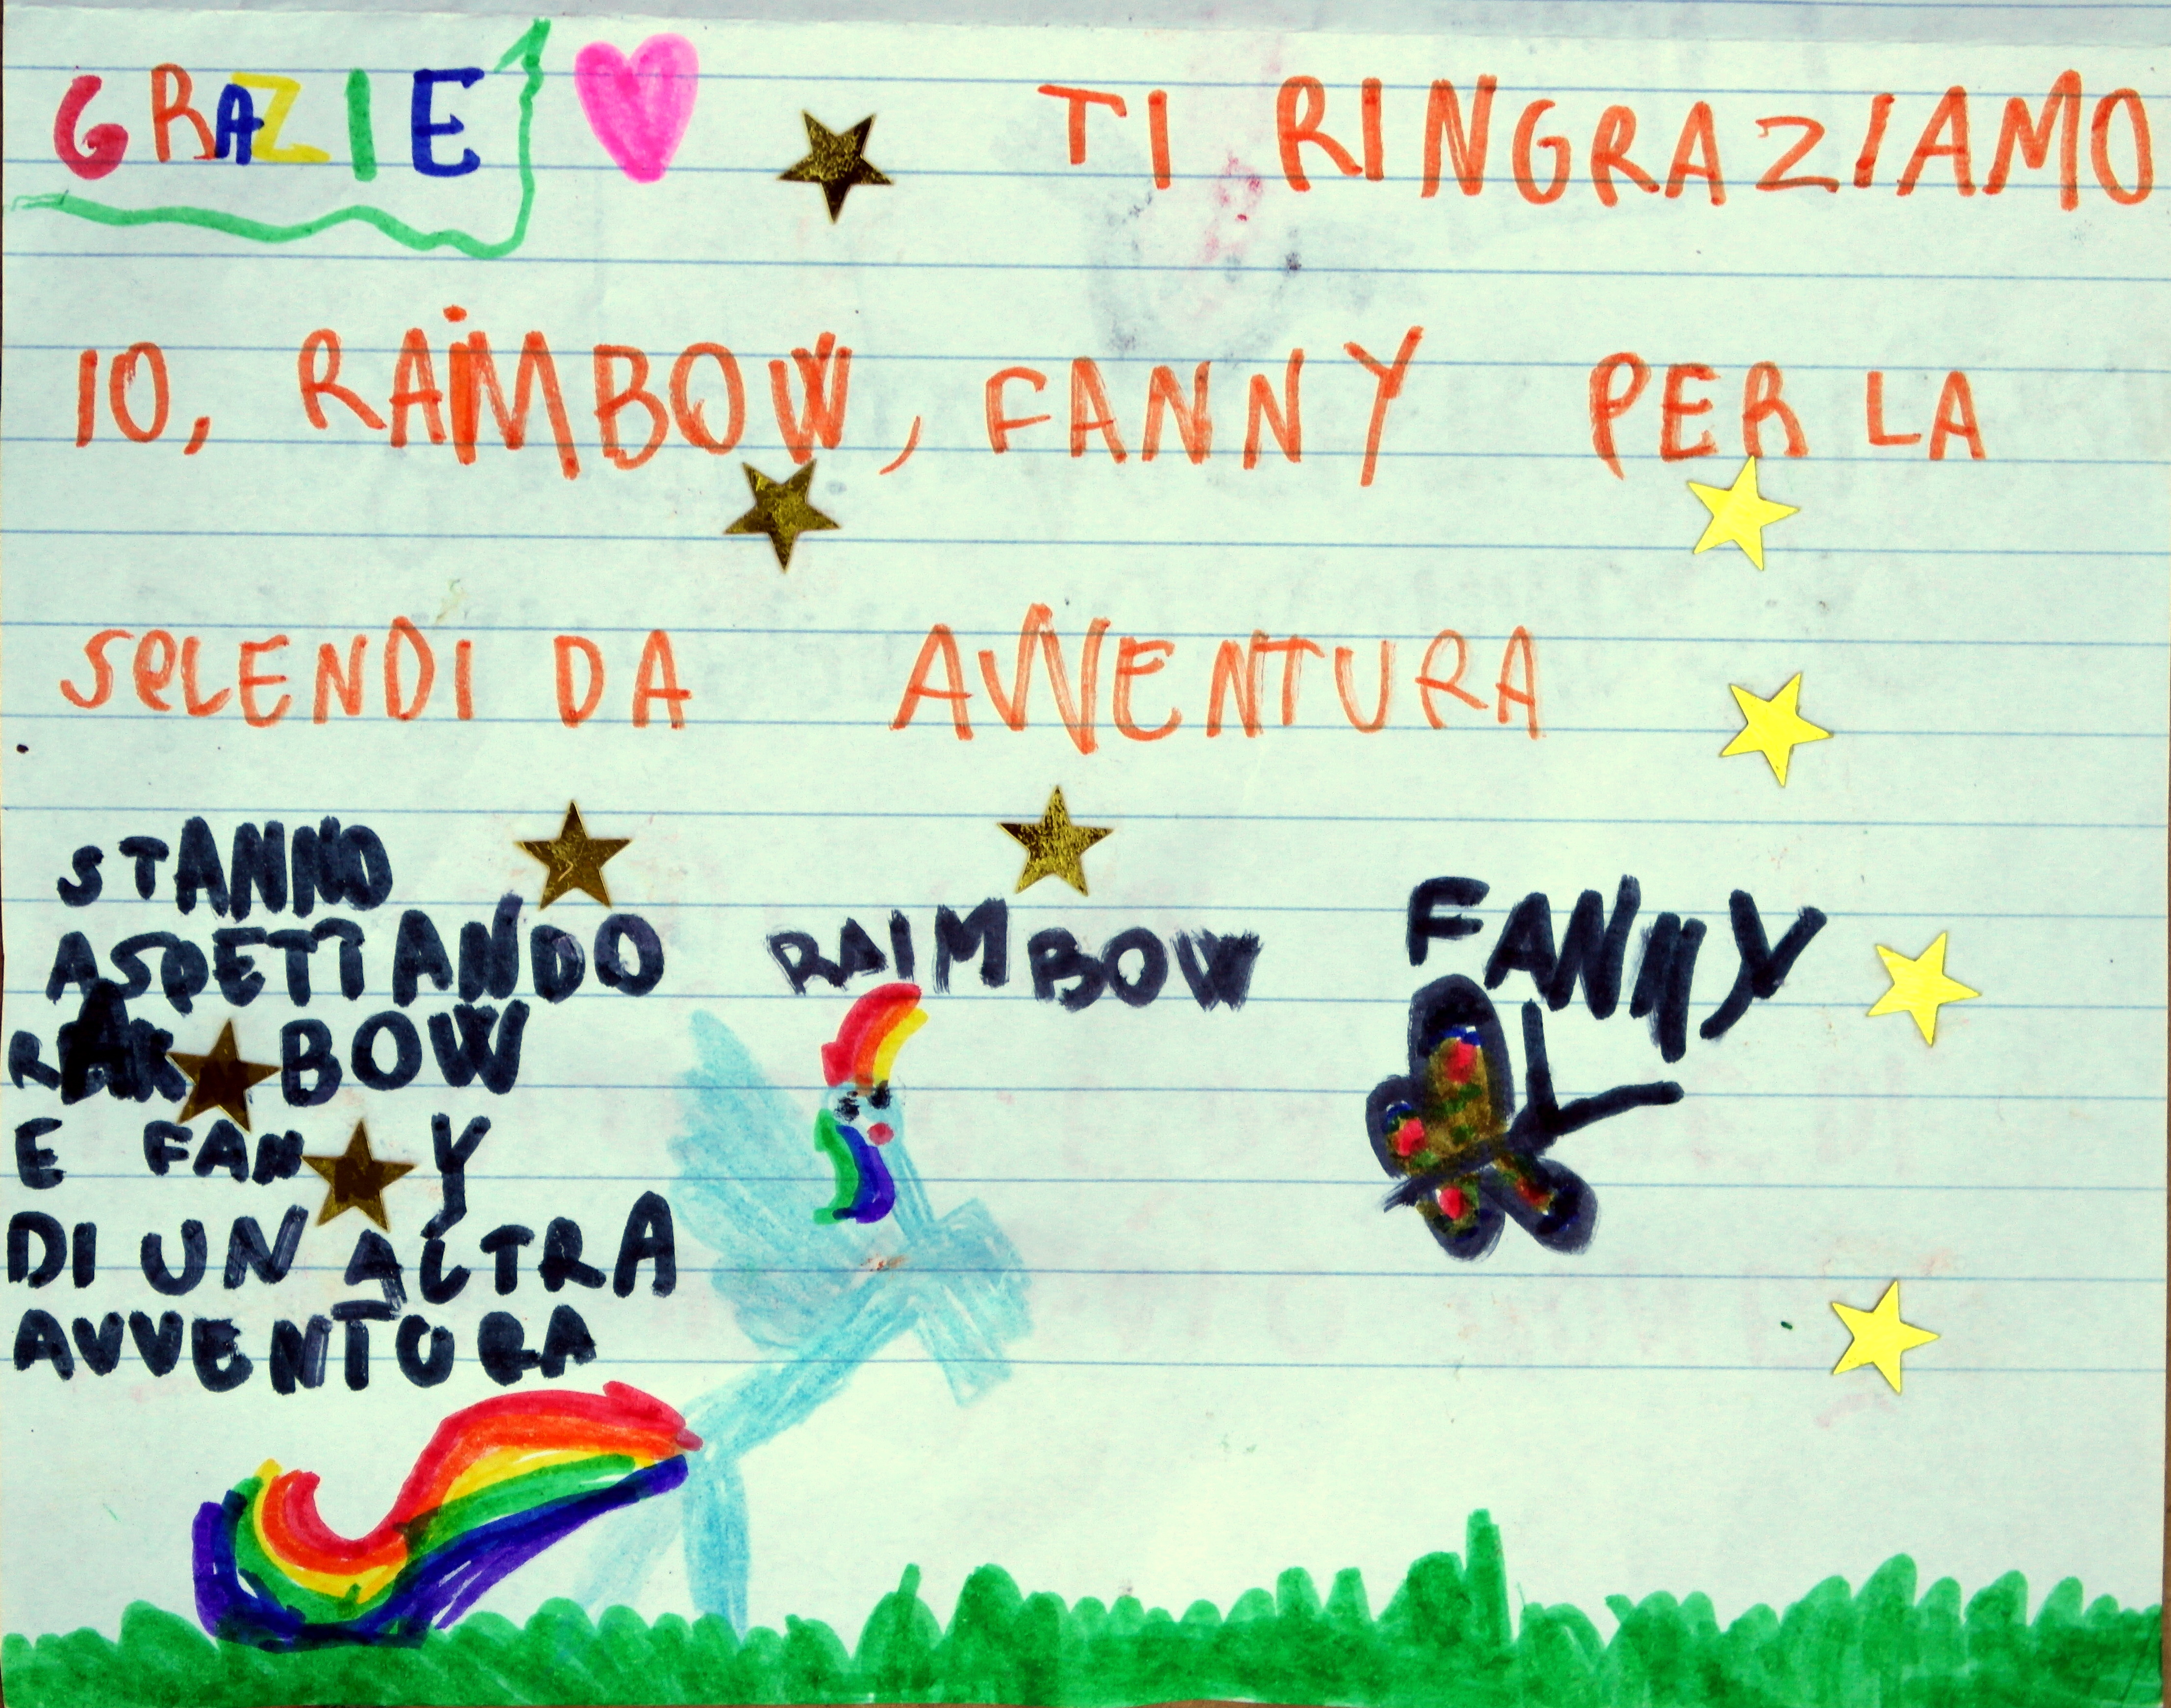 GRAZIE TI RINGRAZIAMO
IO, RAiMBOW, FANNY PER LA
SPLENDI DA AVVENTURA
STANNO
ASPETTANDO
RAIMBOW
FANNY
BOW
E FAN Y
DI UN ALTRA
AVVENTURA